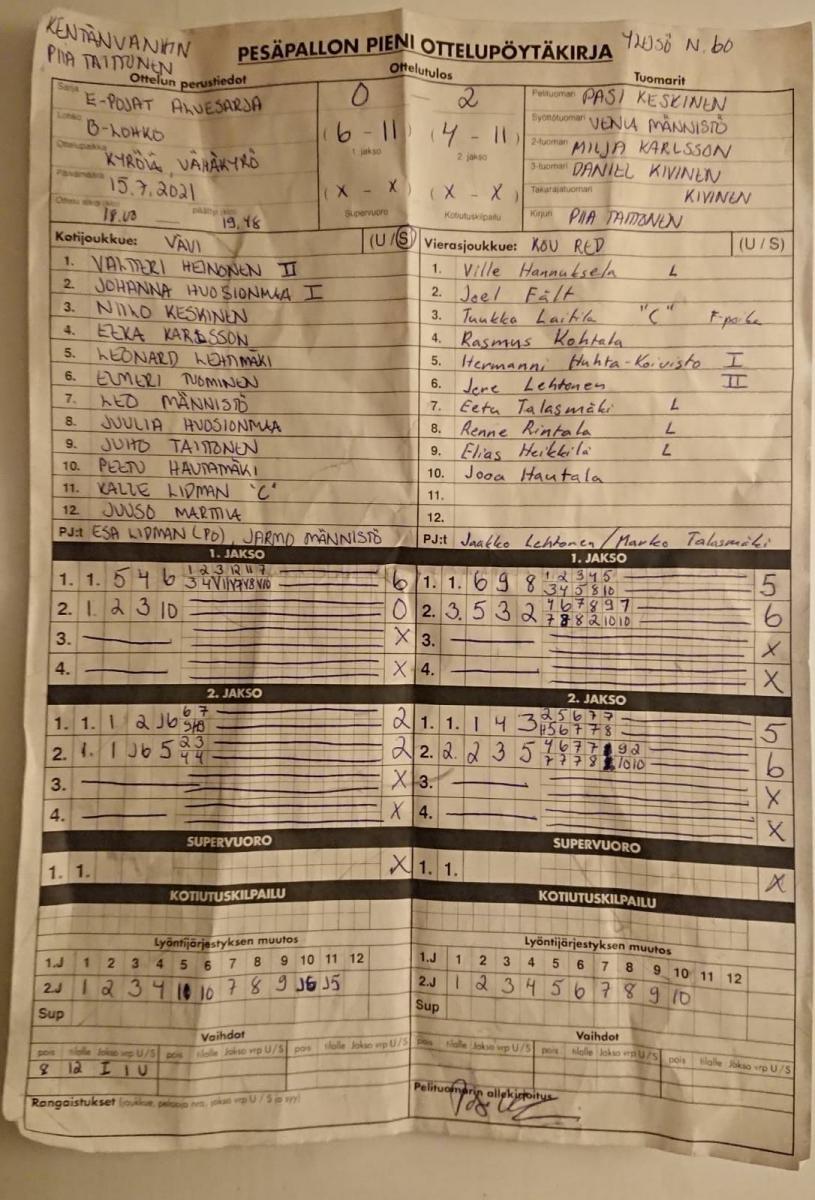 KENTÄNVANKIN
PIIA TAITTONEN
PESÄPALLON PIENI OTTELUPÖYTÄKIRJA
N. 60
Ottelun perustiedot
Ottelutulos
Tuomarit
Sarja E-POJAT ALUESARJA
0 — 2
Pelituomari PASI KESKINEN
Lohko B-LOHKO
(6 - 11) (4 - 11)
1. jakso 2. jakso
Syöttötuomari MÄNNISTÖ
Ottelupaikka KYRÖLÄ, VÄHÄKYRÖ
2-tuomari MILJA KARLSSON
Päivämäärä 15.7.2021
3-tuomari DANIEL KIVINEN
(X - X) (X - X)
Supervuoro Kotiutuskilpailu
Takarajatuomari KIVINEN
Ottelu alkoi (klo) 18.00 — päättyi (klo) 19.48
Kirjuri PIIA TAITTONEN
Kotijoukkue: VÄVI (U / S)
1. VALTTERI HEINONEN II
2. JOHANNA HUOSIONMAA I
3. NIILO KESKINEN
4. EEKA KARLSSON
5. LEONARD LEHTIMÄKI
6. ELMERI TUOMINEN
7. LEO MÄNNISTÖ
8. JUULIA HUOSIONMAA
9. JUHO TAITTONEN
10. PEETU HAUTAMÄKI
11. KALLE LIDMAN "C"
12. JUUSO MARTTILA
PJ:t ESA LIDMAN (PD), JARMO MÄNNISTÖ
Vierasjoukkue: KOU RED (U / S)
1. Ville Hannuksela L
2. Joel Fält
3. Tuukka Laitila "C"
4. Rasmus Kohtala
5. Hermanni Huhta-Koivisto I
6. Jere Lehtonen II
7. Eetu Talasmäki L
8. Renne Rintala L
9. Elias Heikkilä L
10. Jooa Hautala
11.
12.
PJ:t Jaakko Lehtonen / Marko Talasmäki
1. JAKSO
1. 1. 5 4 6 1 2 3 12 11 7 6
2. 1. 2 3 10 0
3. X
4. X
1. JAKSO
1. 1. 6 9 8 1 2 3 4 5 5
3 4 5 8 10
2. 3. 5 3 2 4 6 7 8 9 7 6
7 8 8 2 10 10
3. X
4. X
2. JAKSO
1. 1. 1 2 J6 6 7 2
2. 1. 1 J6 5 2 3 2
4 4
3. X
4. X
2. JAKSO
1. 1. 1 4 3 2 5 6 7 7 5
4 5 6 7 7 8
2. 2. 2 3 5 4 6 7 7 9 2 6
7 7 7 8 10 10
3. X
4. X
SUPERVUORO
1. 1. X
SUPERVUORO
1. 1. X
KOTIUTUSKILPAILU
KOTIUTUSKILPAILU
Lyöntijärjestyksen muutos
1.J 1 2 3 4 5 6 7 8 9 10 11 12
2.J 1 2 3 4 10 7 8 9 J6 J5
Sup
Lyöntijärjestyksen muutos
1.J 1 2 3 4 5 6 7 8 9 10 11 12
2.J 1 2 3 4 5 6 7 8 9 10
Sup
Vaihdot
pois tilalle Jakso vrp U / S pois tilalle Jakso vrp U / S pois tilalle Jakso vrp U / S
8 12 I 1 U
Vaihdot
pois tilalle Jakso vrp U / S pois tilalle Jakso vrp U / S pois tilalle Jakso vrp U / S
Rangaistukset (joukkue, pelaaja nro, jakso vrp U / S ja syy)
Pelituomarin allekirjoitus